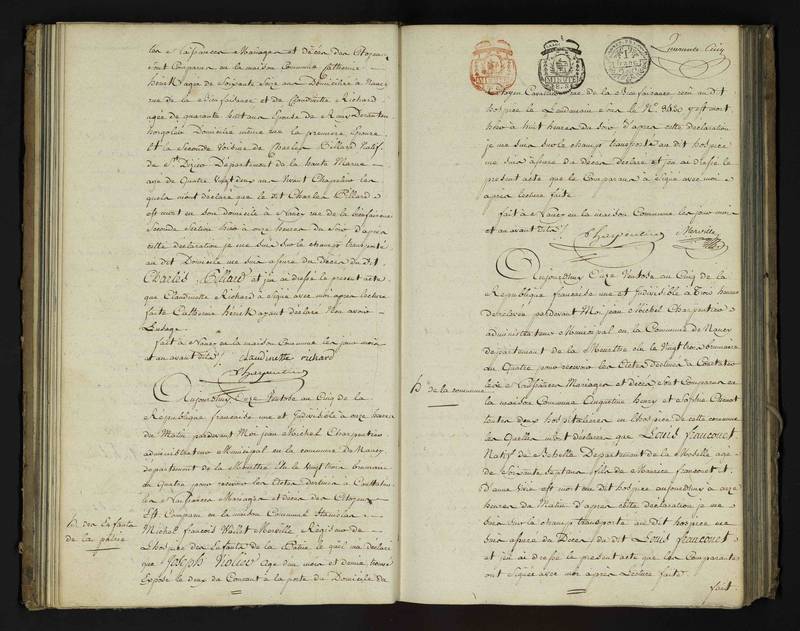 les Naissances Mariages et décès des Citoyens
sont Comparus en la maison Commune Catherine
henck agée de Soixante Seize ans Domiciliée à Nancy
rue de la Bienfaisance et de Claudinette Richard
agée de quarante huit ans Epouse de
Domicilié même rue la premiere Epouse
et la Seconde Voisine de Charles Billard Natif
de St. Dizier Département de la haute Marne
agé de Quatre Vingt deux ans Vivant Chapelier les
quels m'ont déclaré que le dit Charles Billard
est mort en son domicile à Nancy rue de la bienfaisance
Seconde Section hier à onze heures du Soir d'après
cette déclaration je me suis sur le champ transporté
au dit Domicile me suis assuré du Décès du dit
Charles Billard et j'en ai dressé le present acte
que Claudinette Richard à Signé avec moi après lecture
faite Catherine henck ayant déclaré Non avoir
L'usage
fait à Nancy en la maison Commune les jour mois
et an avant dits /. claudinette richard
Charpentier
Aujourdhuy Onze Ventose au Cinq de la
République française une et Indivisible à onze heures
du Matin pardevant Moi jean Michel Charpentier
administrateur Municipal en la commune de Nancy
departement de la Meurthe élu le Vingt trois brumaire
du Quatre pour recevoir les Actes destinés à Constater
les Naissances Mariages et décès des Citoyens
Est Comparu en la maison Commune Stanislas
Michel françois Vaillot Merville Régisseur de
L'hospice des Enfants de la Patrie le quel m'a déclaré
que Joseph Violier agé d'un mois et demie trouvé
Exposé le deux du Courant à la porte du Domicile du
h. des Enfants
de la patrie
Cinquante Cinq
MINUTE
Citoyen rue de la Bienfaisance reçu au dit
hospice le Lendemain sous le No. 363 y est mort
hier à huit heures du Soir d'après cette déclaration
je me suis sur le champ transporté au dit hospice
me suis assuré du décès déclaré et j'en ai dressé le
présent acte que le Comparant à Signé avec moi
après lecture faite
fait à Nancy en la maison Commune les jour mois
et an avant dits /. Charpentier Merville
Aujourdhuy Onze Ventose au Cinq de la
République française une et Indivisible à Trois heures
de relevée pardevant Moi jean Michel Charpentier
administrateur Municipal en la Commune de Nancy
departement de la Meurthe élu le Vingt trois brumaire
du Quatre pour recevoir les Actes destinés à Constater
les Naissances Mariages et décès sont Comparus en
la maison Commune Augustine henry et Sophie
toutes deux hospitalieres en L'hospice de cette commune
les Quelles m'ont déclarées que Louis faucouet
Natif de Departement de la Moselle agé
de Soixante Sept ans fils de Maurice francouet et
d'anne est mort au dit hospice aujourdhuy à onze
heures du Matin d'après cette déclaration je me
Suis sur le champ transporté au dit hospice me
suis assuré du Décès du dit Louis faucouet
et j'en ai dressé le présent acte que les Comparantes
ont Signée avec moi après Lecture faite
fait
h. de la commune